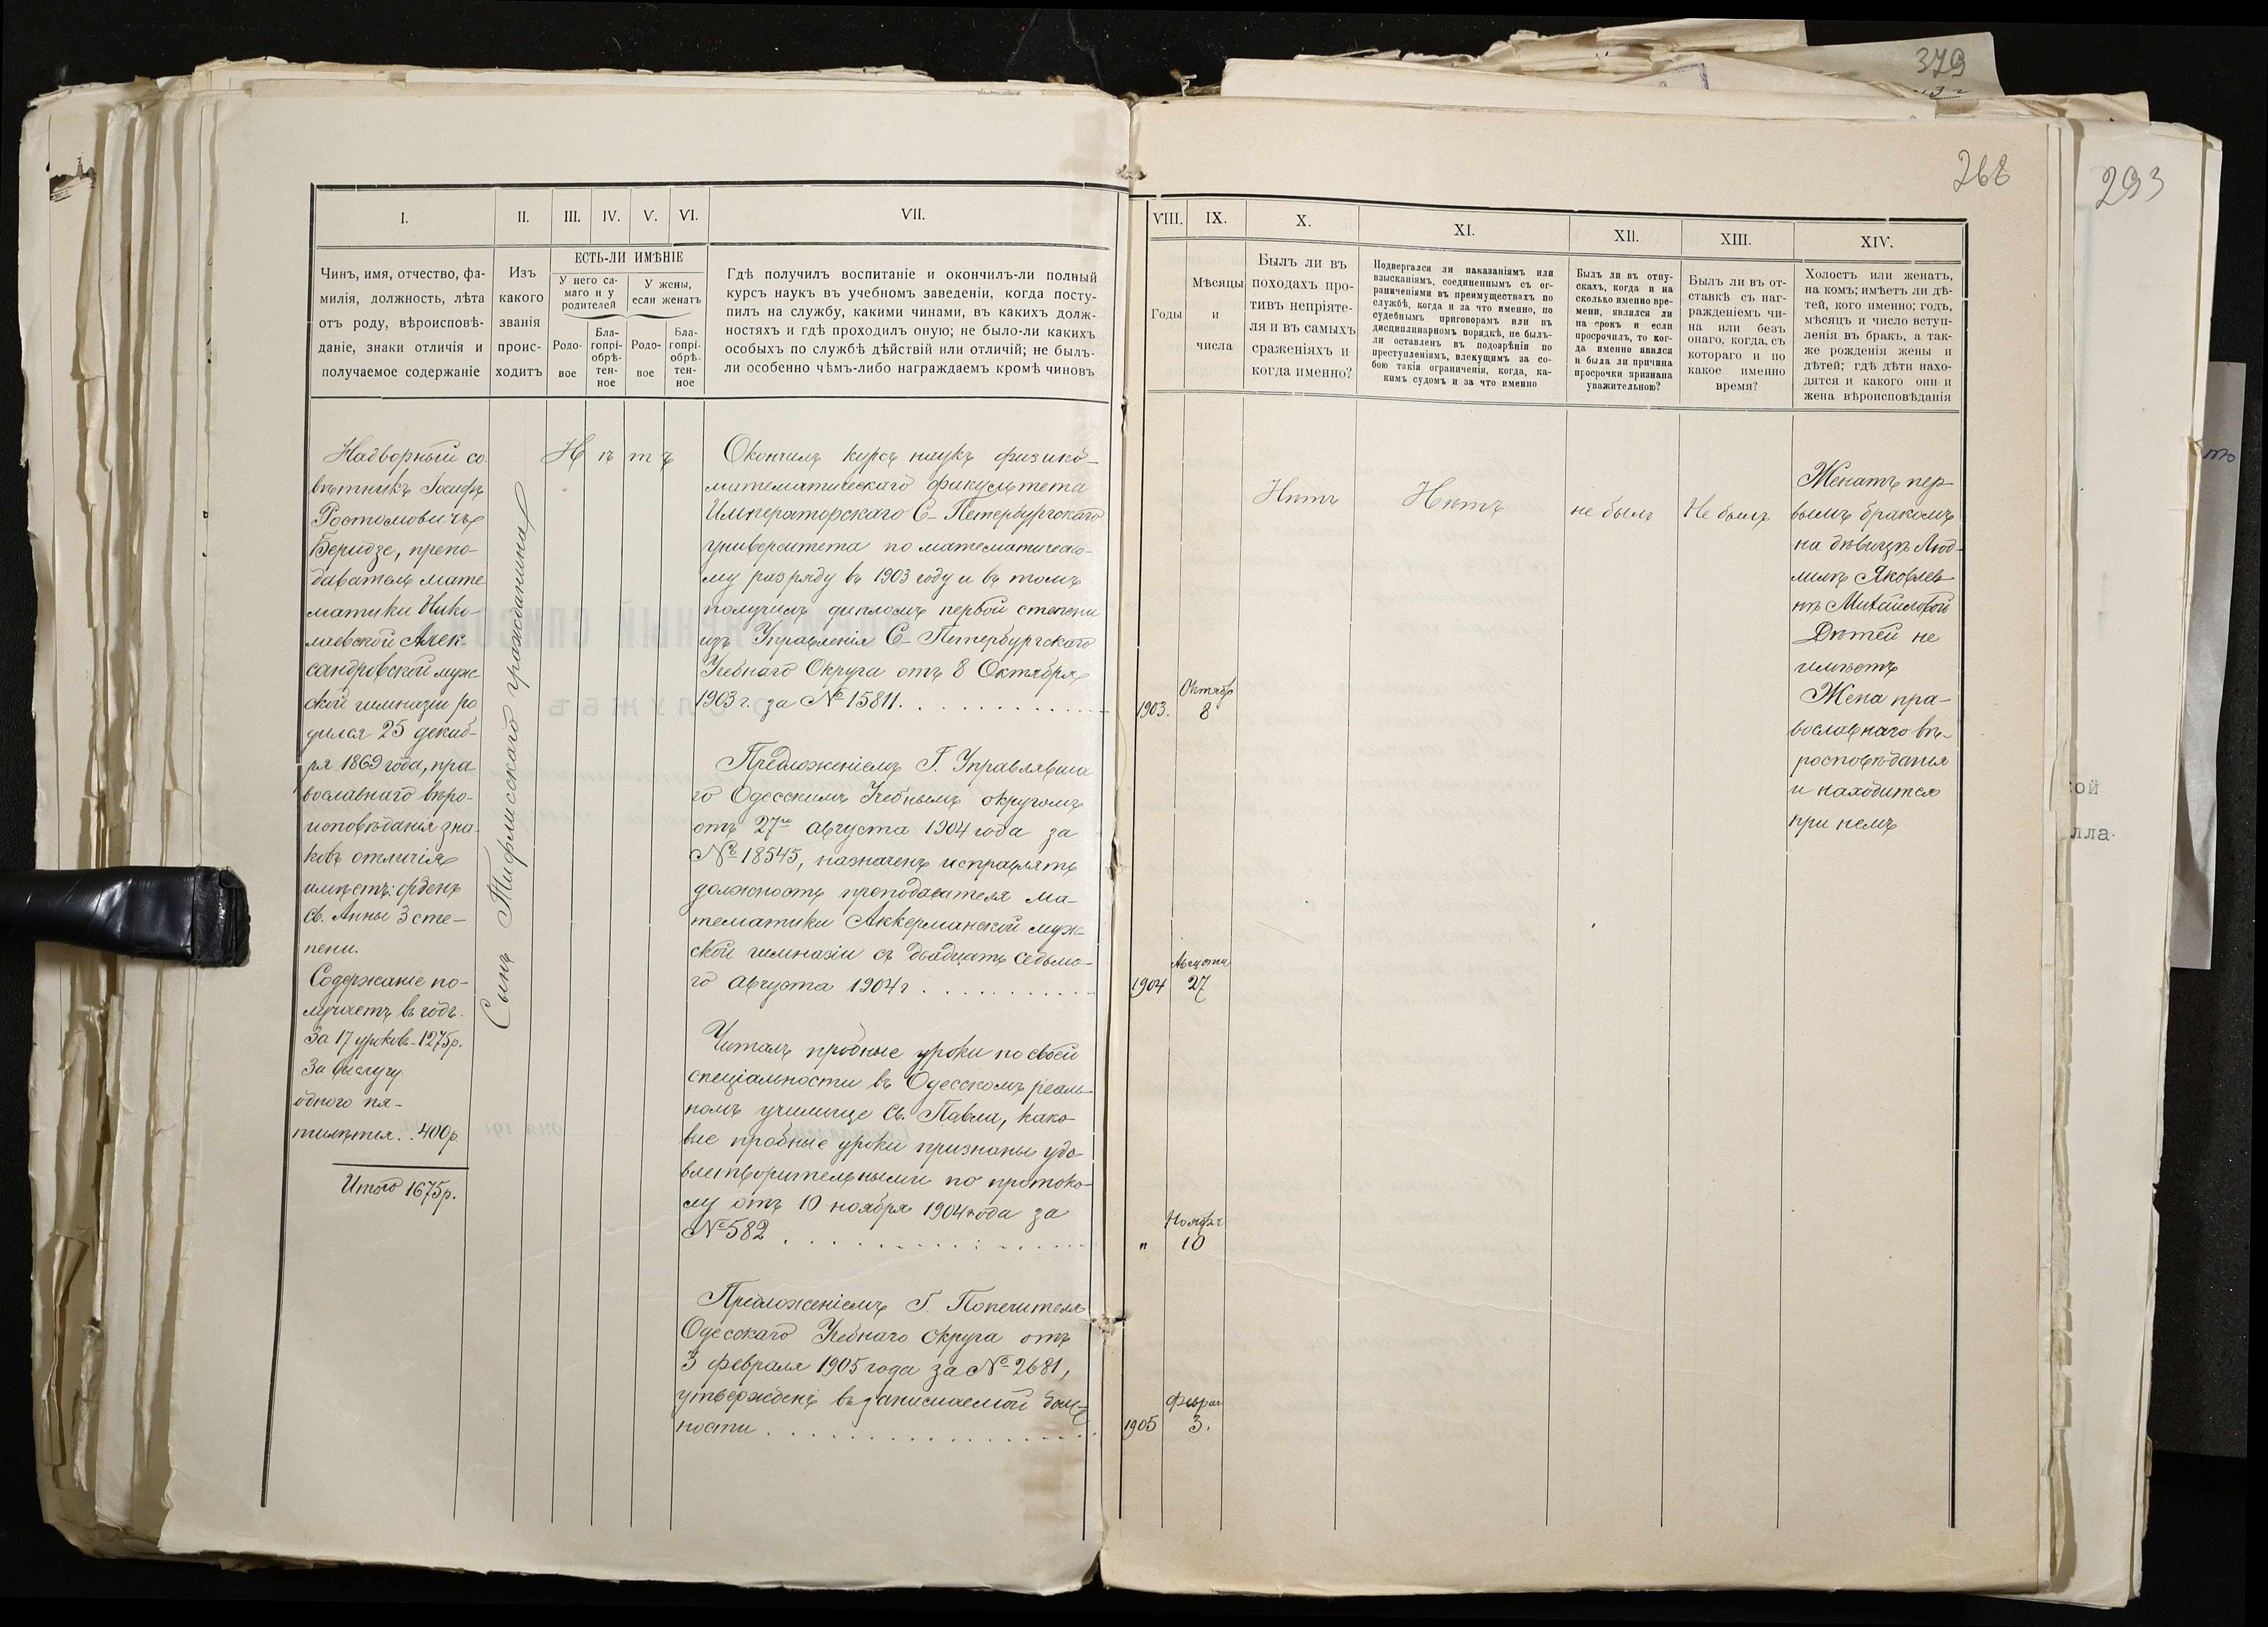 379
268
293
I.
II.
III.
IV.
V.
VI.
VII.
Чинъ, имя, отчество, фа-
милія, должность, лѣта
отъ роду, вѣроисповѣ-
даніе, знаки отличія и
получаемое содержаніе
Изъ
какого
званія
проис-
ходитъ
ЕСТЬ-ЛИ ИМѢНІЕ
У него са-
маго и у
родителей
У жены,
если женатъ
Родо-
вое
Бла-
гопрі-
обрѣ-
тен-
ное
Родо-
вое
Бла-
гопрі-
обрѣ-
тен-
ное
Гдѣ получилъ воспитаніе и окончилъ-ли полный
курсъ наукъ въ учебномъ заведеніи, когда посту-
пилъ на службу, какими чинами, въ какихъ долж-
ностяхъ и гдѣ проходилъ оную; не было-ли какихъ
особыхъ по службѣ дѣйствій или отличій; не былъ-
ли особенно чѣмъ-либо награждаемъ кромѣ чиновъ
Надворный со-
вѣтникъ Іосифъ
Ростомовичъ
Беридзе, препо-
даватель мате
матики Нико-
лаевской Алек-
сандровской муж-
ской гимназіи ро
дился 25 декаб-
ря 1869 года, пра
вославнаго вѣро-
исповѣданія зна-
ковъ отличія
имѣетъ: орденъ
св. Анны 3 сте-
пени.
Содержаніе по-
лучаетъ въ годъ.
За 17 уроковъ - 1275р.
За выслугу
одного пя-
тилѣтія. . 400р.
Итого 1675р.
Сынъ Тифлисскаго гражданина
Н ѣ т ъ
Окончилъ курсъ наукъ физико-
математическаго факультета
Императорскаго С-Петербургскаго
университета по математическо-
му разряду въ 1903 году и въ томъ
получилъ дипломъ первой степени
изъ Управленія С-Петербургскаго
Учебнаго Округа отъ 8 Октября
1903 г. за № 15811.
Предложеніемъ Г. Управлявша
го Одесскимъ Учебнымъ округомъ
отъ 27го августа 1904 года за
№ 18545, назначенъ исправлять
должность преподавателя ма-
тематики Аккерманской муж-
ской гимназіи съ двадцать седьмо-
го августа 1904 г.
Читалъ пробные уроки по своей
спеціальности въ Одесскомъ реаль-
номъ училище св. Павла, како-
вые пробные уроки признаны удо-
влетворительными по протоко-
лу отъ 10 ноября 1904 года за
№ 582
Предложеніемъ Г. Попечителя
Одесскаго Учебнаго Округа отъ
3 февраля 1905 года за № 2681,
утвержденъ въ занимаемой долж-
ности
VIII.
IX.
X.
XI.
XII.
XIII.
XIV.
Годы
Мѣсяцы
и
числа
Былъ ли въ
походахъ про-
тивъ непріяте-
ля и въ самыхъ
сраженіяхъ и
когда именно?
Подвергался ли наказаніямъ или
взысканіямъ, соединеннымъ съ ог-
раниченіями въ преимуществахъ по
службѣ, когда и за что именно, по
судебнымъ приговорамъ или въ
дисциплинарномъ порядкѣ, не былъ-
ли оставленъ въ подозрѣніи по
преступленіямъ, влекущимъ за со-
бою такія ограниченія, когда, ка-
кимъ судомъ и за что именно
Былъ ли въ отпу-
скахъ, когда и на
сколько именно вре-
мени, являлся ли
на срокъ и если
просрочилъ, то ког-
да именно явился
и была ли причина
просрочки признана
уважительною?
Былъ ли въ от-
ставкѣ съ наг-
ражденіемъ чи-
на или безъ
онаго, когда, съ
котораго и по
какое именно
время?
Холостъ или женатъ,
на комъ; имѣетъ ли дѣ-
тей, кого именно; годъ,
мѣсяцъ и число вступ-
ленія въ бракъ, а так-
же рожденія жены и
дѣтей; гдѣ дѣти нахо-
дятся и какого они и
жена вѣроисповѣданія
1903.
Октябр
8
1904
Августа
27
"
Ноября
10
1905
Феврал
3.
Нѣтъ
Нѣтъ
не былъ
Не былъ
Женатъ пер-
вымъ бракомъ
на дѣвицѣ Люд-
милѣ Яковлев-
нѣ Михайловой
Дѣтей не
имѣетъ
Жена пра-
вославнаго вѣ-
росповѣданія
и находится
при немъ
ой
лла-